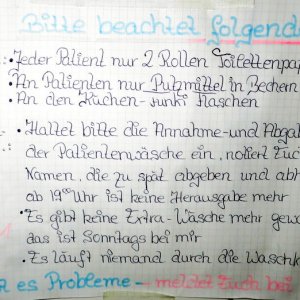 Bitte beachtet folgend
• Jeder Patient nur 2 Rollen Toilettenpap
• An Patienten nur Putzmittel in Bechern
• An den Küchen-funki Flaschen
• Haltet bitte die Annahme-und Abgab
der Patientenwäsche ein, notiert Euc
Namen, die zu spät abgeben und abh
ab 19⁰⁰ Uhr ist keine Herausgabe mehr
• Es gibt keine Extra-Wäsche mehr gewa
das ist Sonntags bei mir
• Es läuft niemand durch die Waschk
es Probleme - meldet Euch bei